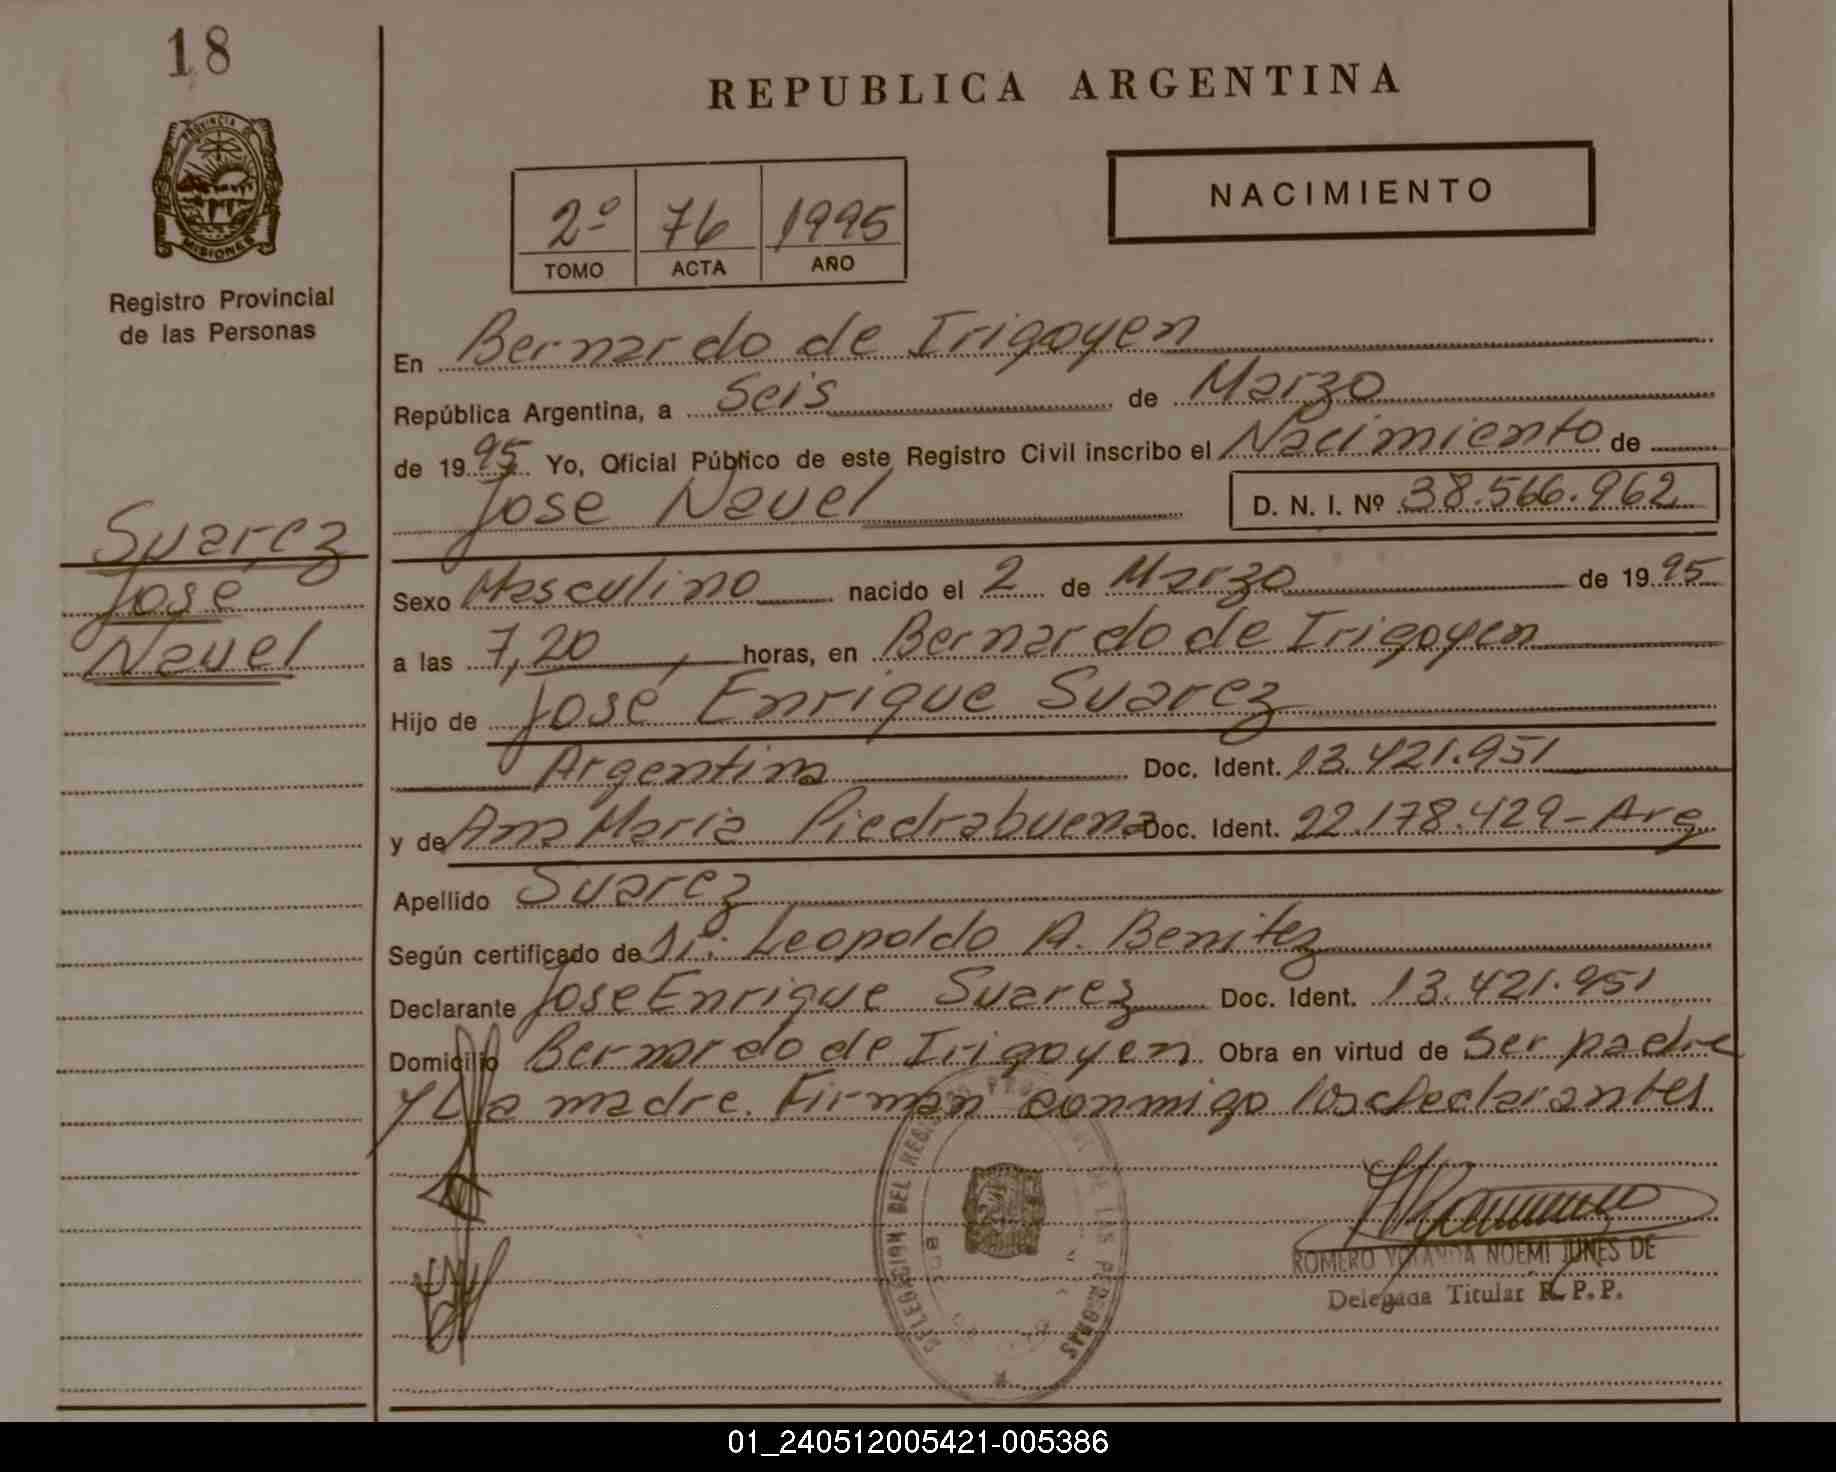 18
REPUBLICA ARGENTINA
PROVINCIA DE
MISIONES
Registro Provincial
de las Personas
2º 76 1995
TOMO ACTA AÑO
NACIMIENTO
En Bernardo de Irigoyen
República Argentina, a Seis de Marzo
de 1995 Yo, Oficial Público de este Registro Civil inscribo el Nacimiento de
Jose Nauel D. N. I. Nº 38.566.962
Suarez
José
Nauel
Sexo Masculino nacido el 2 de Marzo de 1995
a las 7,20 horas, en Bernardo de Irigoyen
Hijo de José Enrique Suarez
Argentina Doc. Ident. 13.421.951
y de Ana Maria Piedrabuena Doc. Ident. 22.178.429-Arg
Apellido Suarez
Según certificado de Dr: Leopoldo A. Benitez
Declarante Jose Enrique Suarez Doc. Ident. 13.421.951
Domicilio Bernardo de Irigoyen Obra en virtud de Ser padre
y La madre. Firman conmigo los declarantes
DELEGACION DEL REGISTRO DE LAS PERSONAS
ROMERO YOLANDA NOEMI JUNES DE
Delegada Titular R. P. P.
01_240512005421-005386